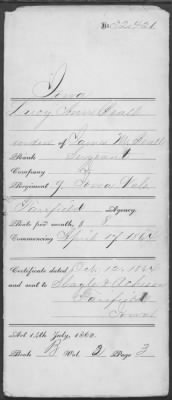 No 22,421
Iowa
Lucy Ann Heall
widow of James M. Heall
Rank Sergeant
Company
Regiment 7 Iowa Vols
Fairfield Agency.
Rate per month, $ 8
Commencing April 17 1864
Certificate dated Oct. 12, 1864
and sent to Slagle & Acheson
Fairfield
Iowa
Act 14th July, 1862.
Book B Vol. 2 Page 3